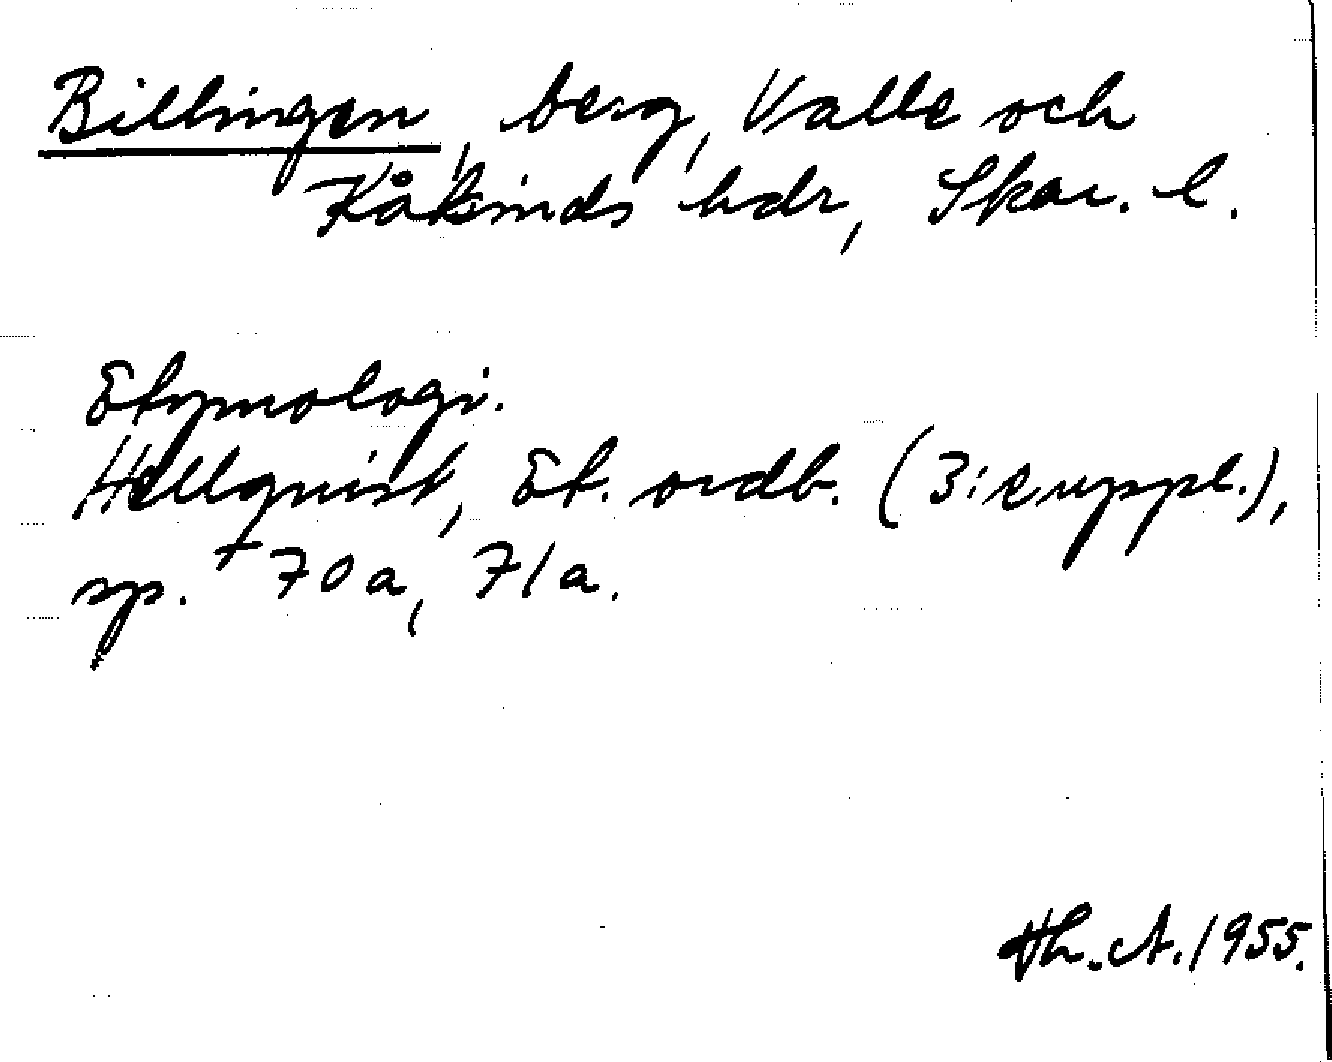 Billingen, berg, Valle och
Kåkinds hdr, Skar. l.
Etymologi.
Hellquist, Et. ordb. (3:e uppl.),
sp. 70 a, 71 a.
Th. A. 1955.